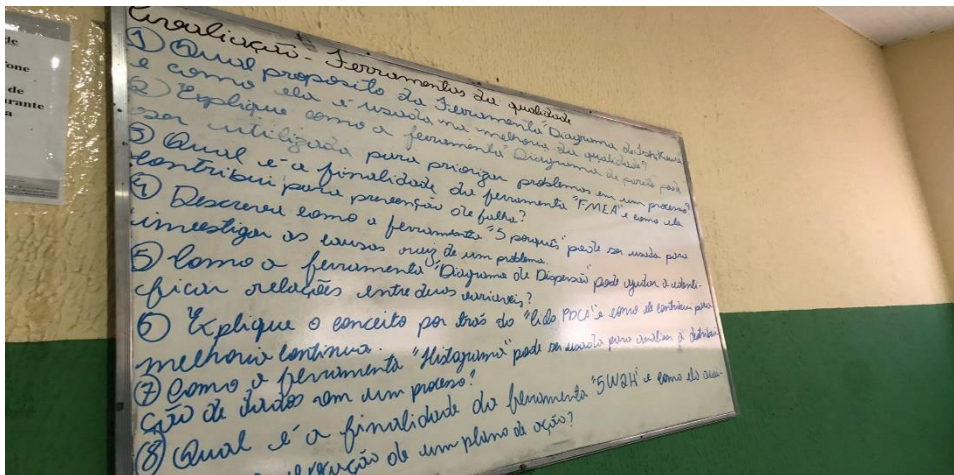 de
fone
de
urante
a
Avaliação - Ferramentas da qualidade
① Qual proposito da Ferramenta "Diagrama de Ishikawa
e como ela é usada na melhoria da qualidade?
② Explique como a ferramenta Diagrama de pareto pode
ser utilizada para priorizar problemas em um processo?
③ Qual é a finalidade da ferramenta "FMEA" e como ela
contribui para prevenção de falha?
④ Descreva como a ferramenta "5 porquês" pode ser usada para
investigar as causas raiz de um problema.
⑤ Como a ferramenta "Diagrama de Dispersão" pode ajudar a identi-
ficar relações entre duas variáveis?
⑥ Explique o conceito por trás do "Ciclo PDCA" e como ele contribui para
melhoria contínua.
⑦ Como a ferramenta "Histograma" pode ser usada para analisar a distribui
ção de dados em um processo?
⑧ Qual é a finalidade da ferramenta "5W2H" e como ela
execução de um plano de ação?